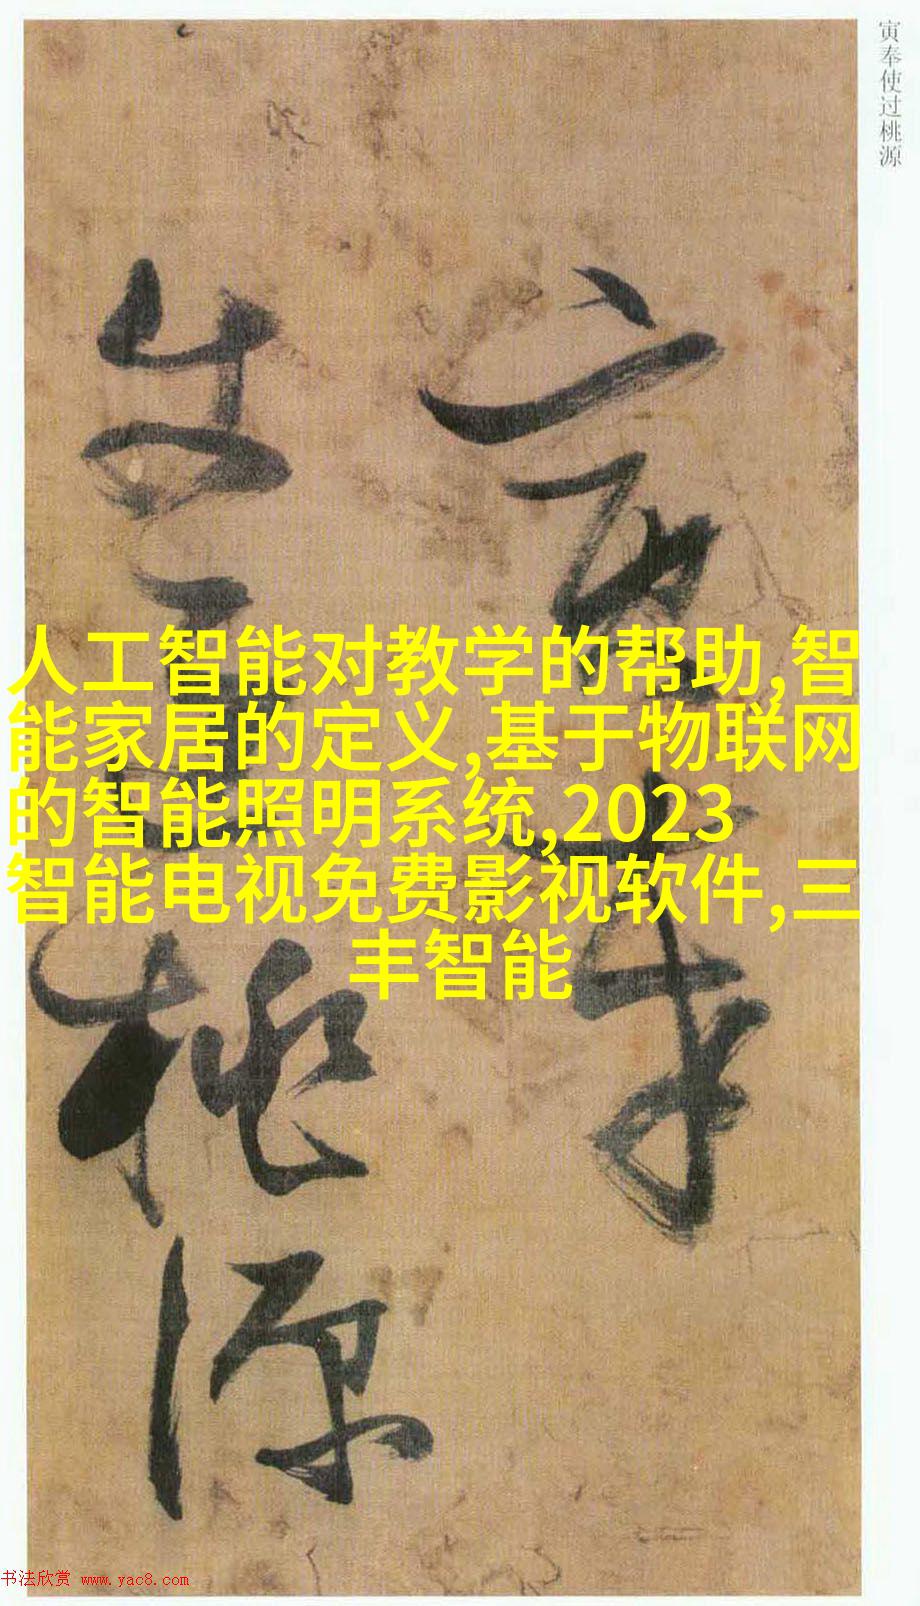 寅奉使过桃源
寅奉
使过桃源
人工智能对教学的帮助,智
能家居的定义,基于物联网
的智能照明系统,2023
智能电视免费影视软件,三
丰智能
书法欣赏 www.yac8.com